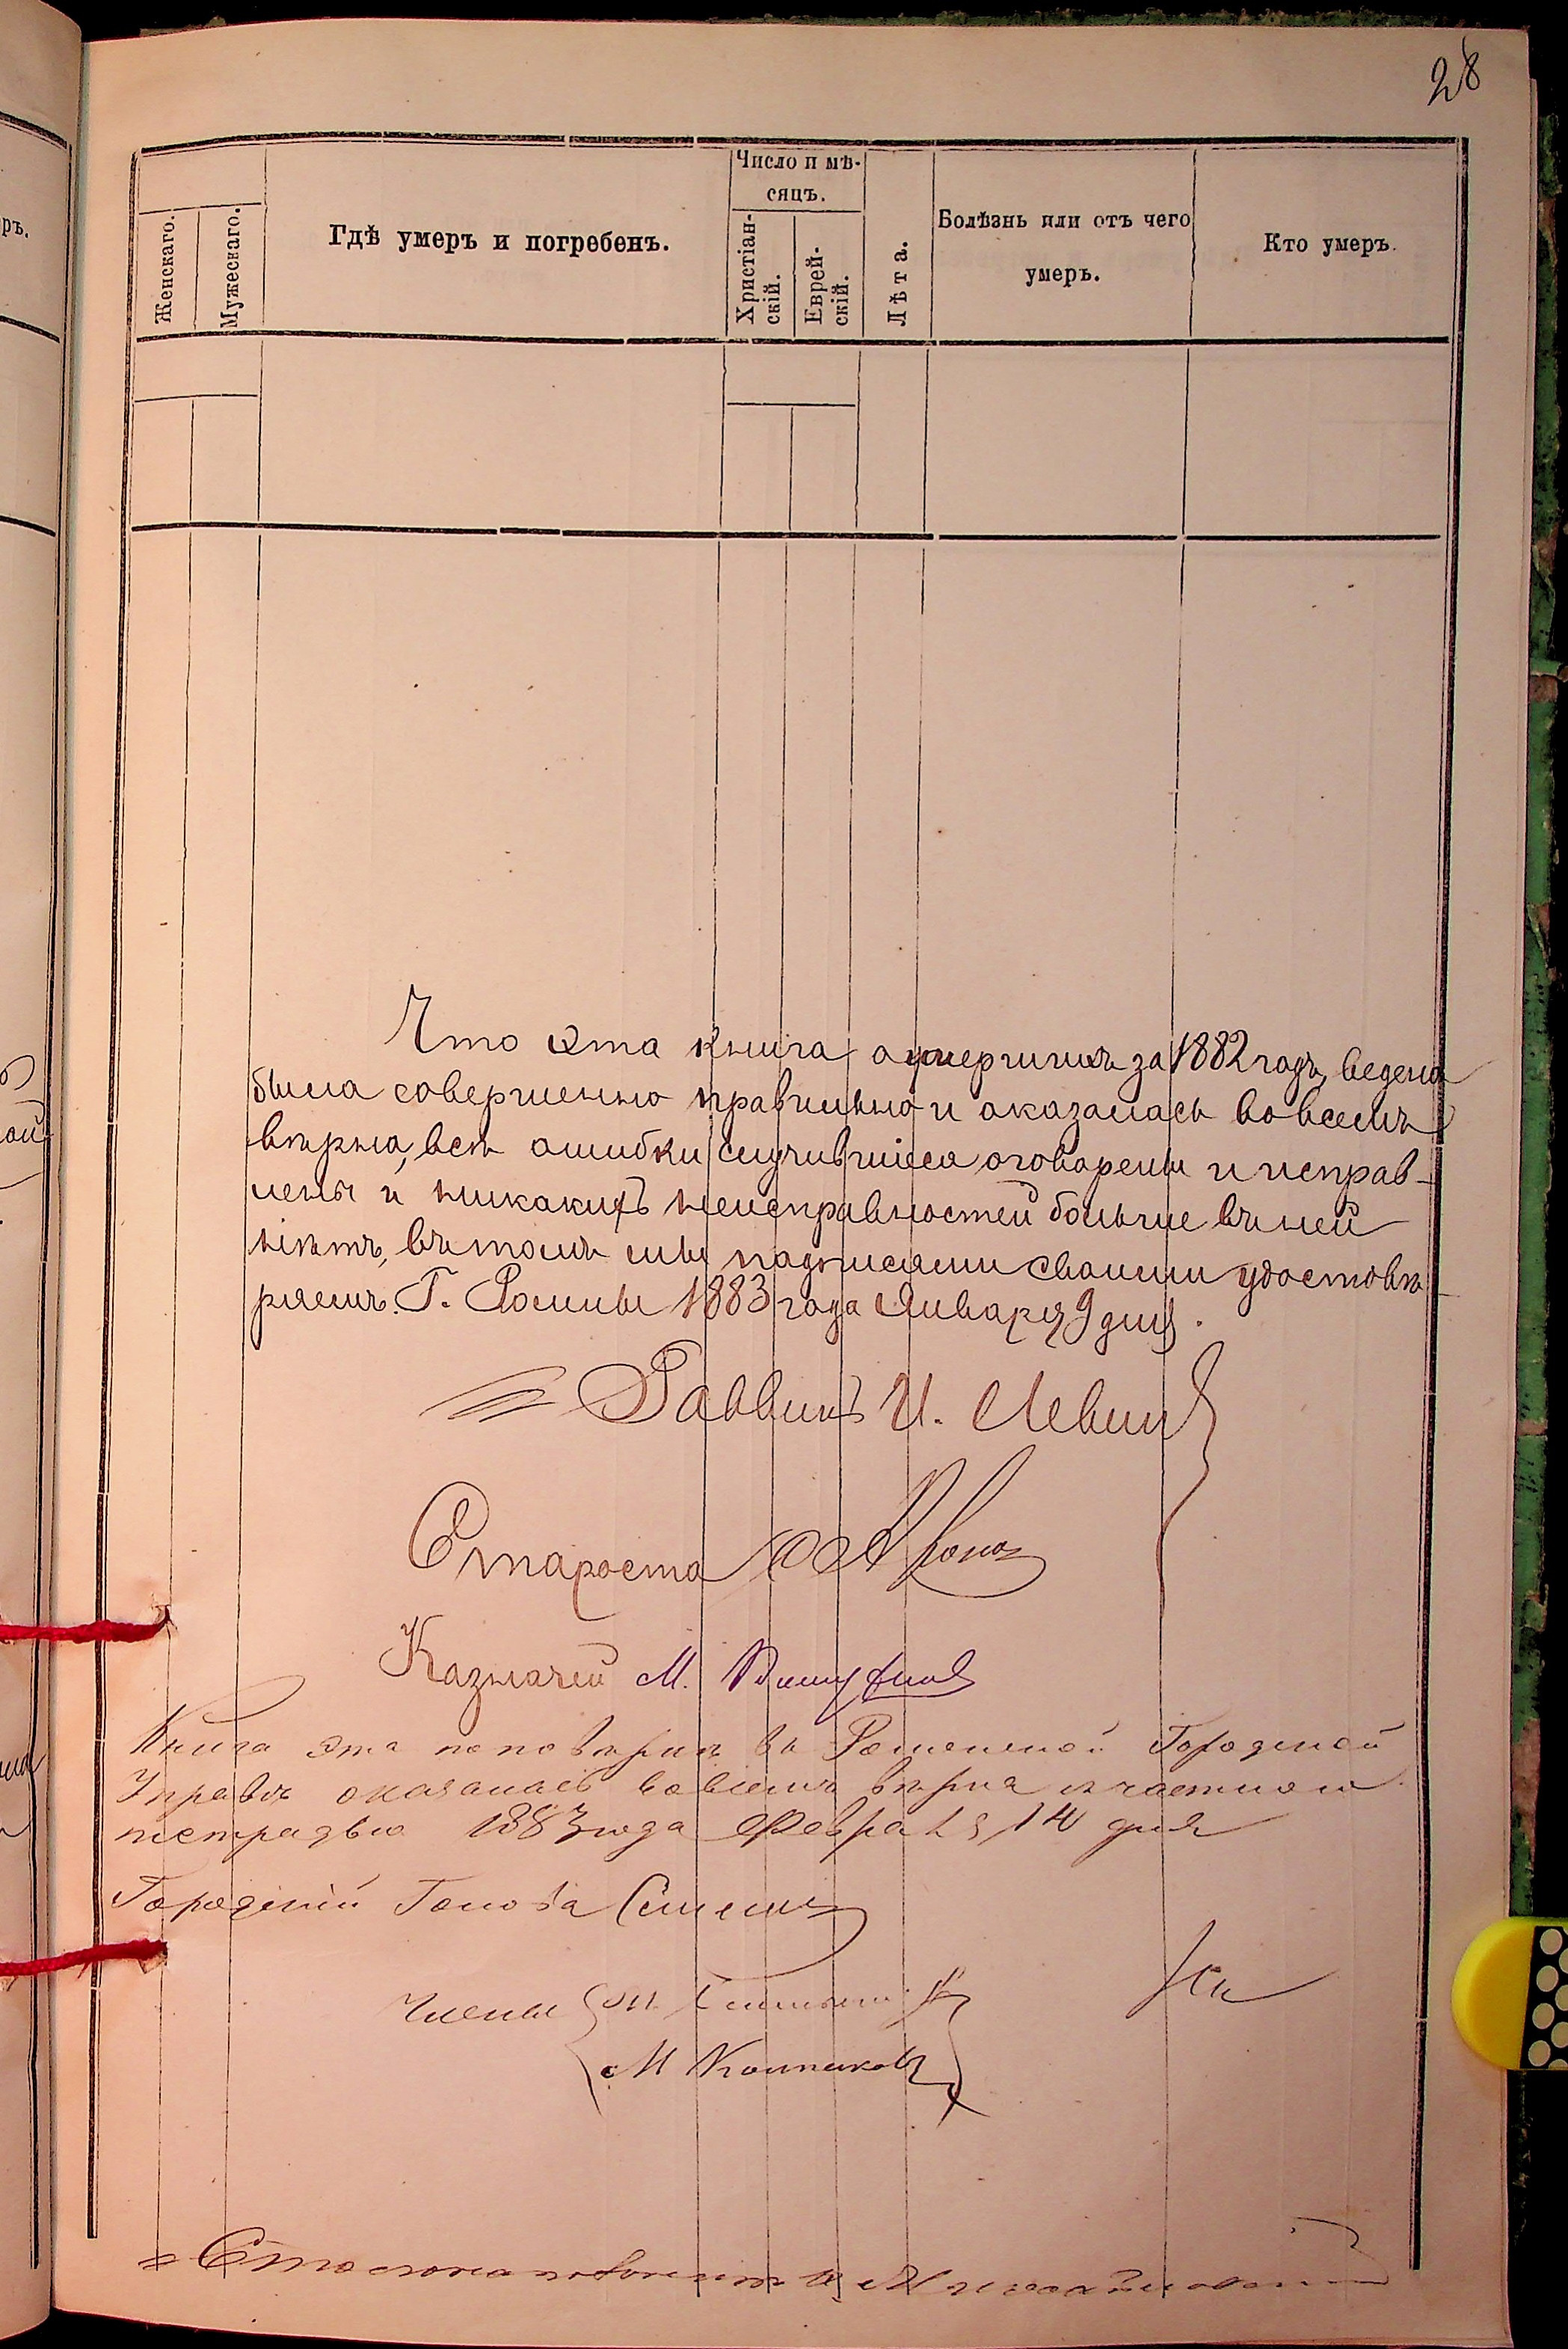 28
Число и мѣ-
сяцъ.
Женскаго.
Мужескаго.
Гдѣ умеръ и погребенъ.
Христіан-
скій.
Еврей-
скій.
Лѣта.
Болѣзнь или отъ чего
умеръ.
Кто умеръ.
Что эта книга о умершихъ за 1882 годъ, ведена
была совершенно правильно и оказалась во всемъ
вѣрна, всѣ ошибки случившіеся оговорены и исправ-
лены и никакихъ неисправностей больше въ ней
нѣтъ, въ томъ мы подписями своими удостовѣ-
ряемъ. Г. Ромны 1883 года Января 9 дня.
Раввинъ И. Левин
Староста
Казначей М.
Книга эта по повѣркѣ въ Роменской Городской
Управѣ оказалась во всемъ вѣрна
тетрадью 1883 года Февраля 14 дня
Городской Голова
Члены
М